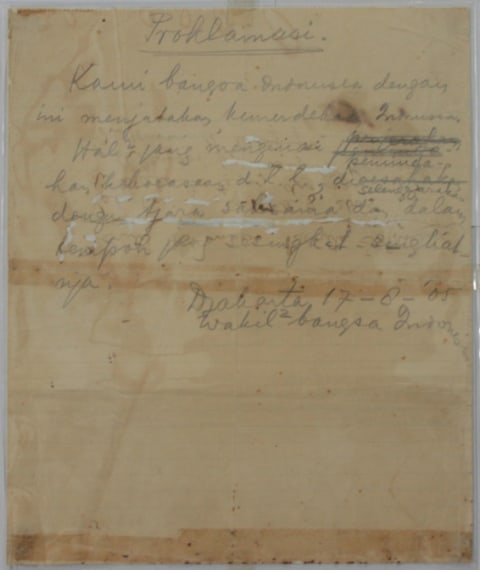 Proklamasi.
Kami bangsa Indonesia dengan
ini menjatakan kemerdekaan Indonesia.
Hal² jang mengenai
peminda-
han kekoeasaan d.l.l.,
diselenggarakan
dengan tjara saksama dan dalam
tempoh jang sesingkat-singkat-
nja.
Djakarta 17-8-'05
Wakil² bangsa Indonesia